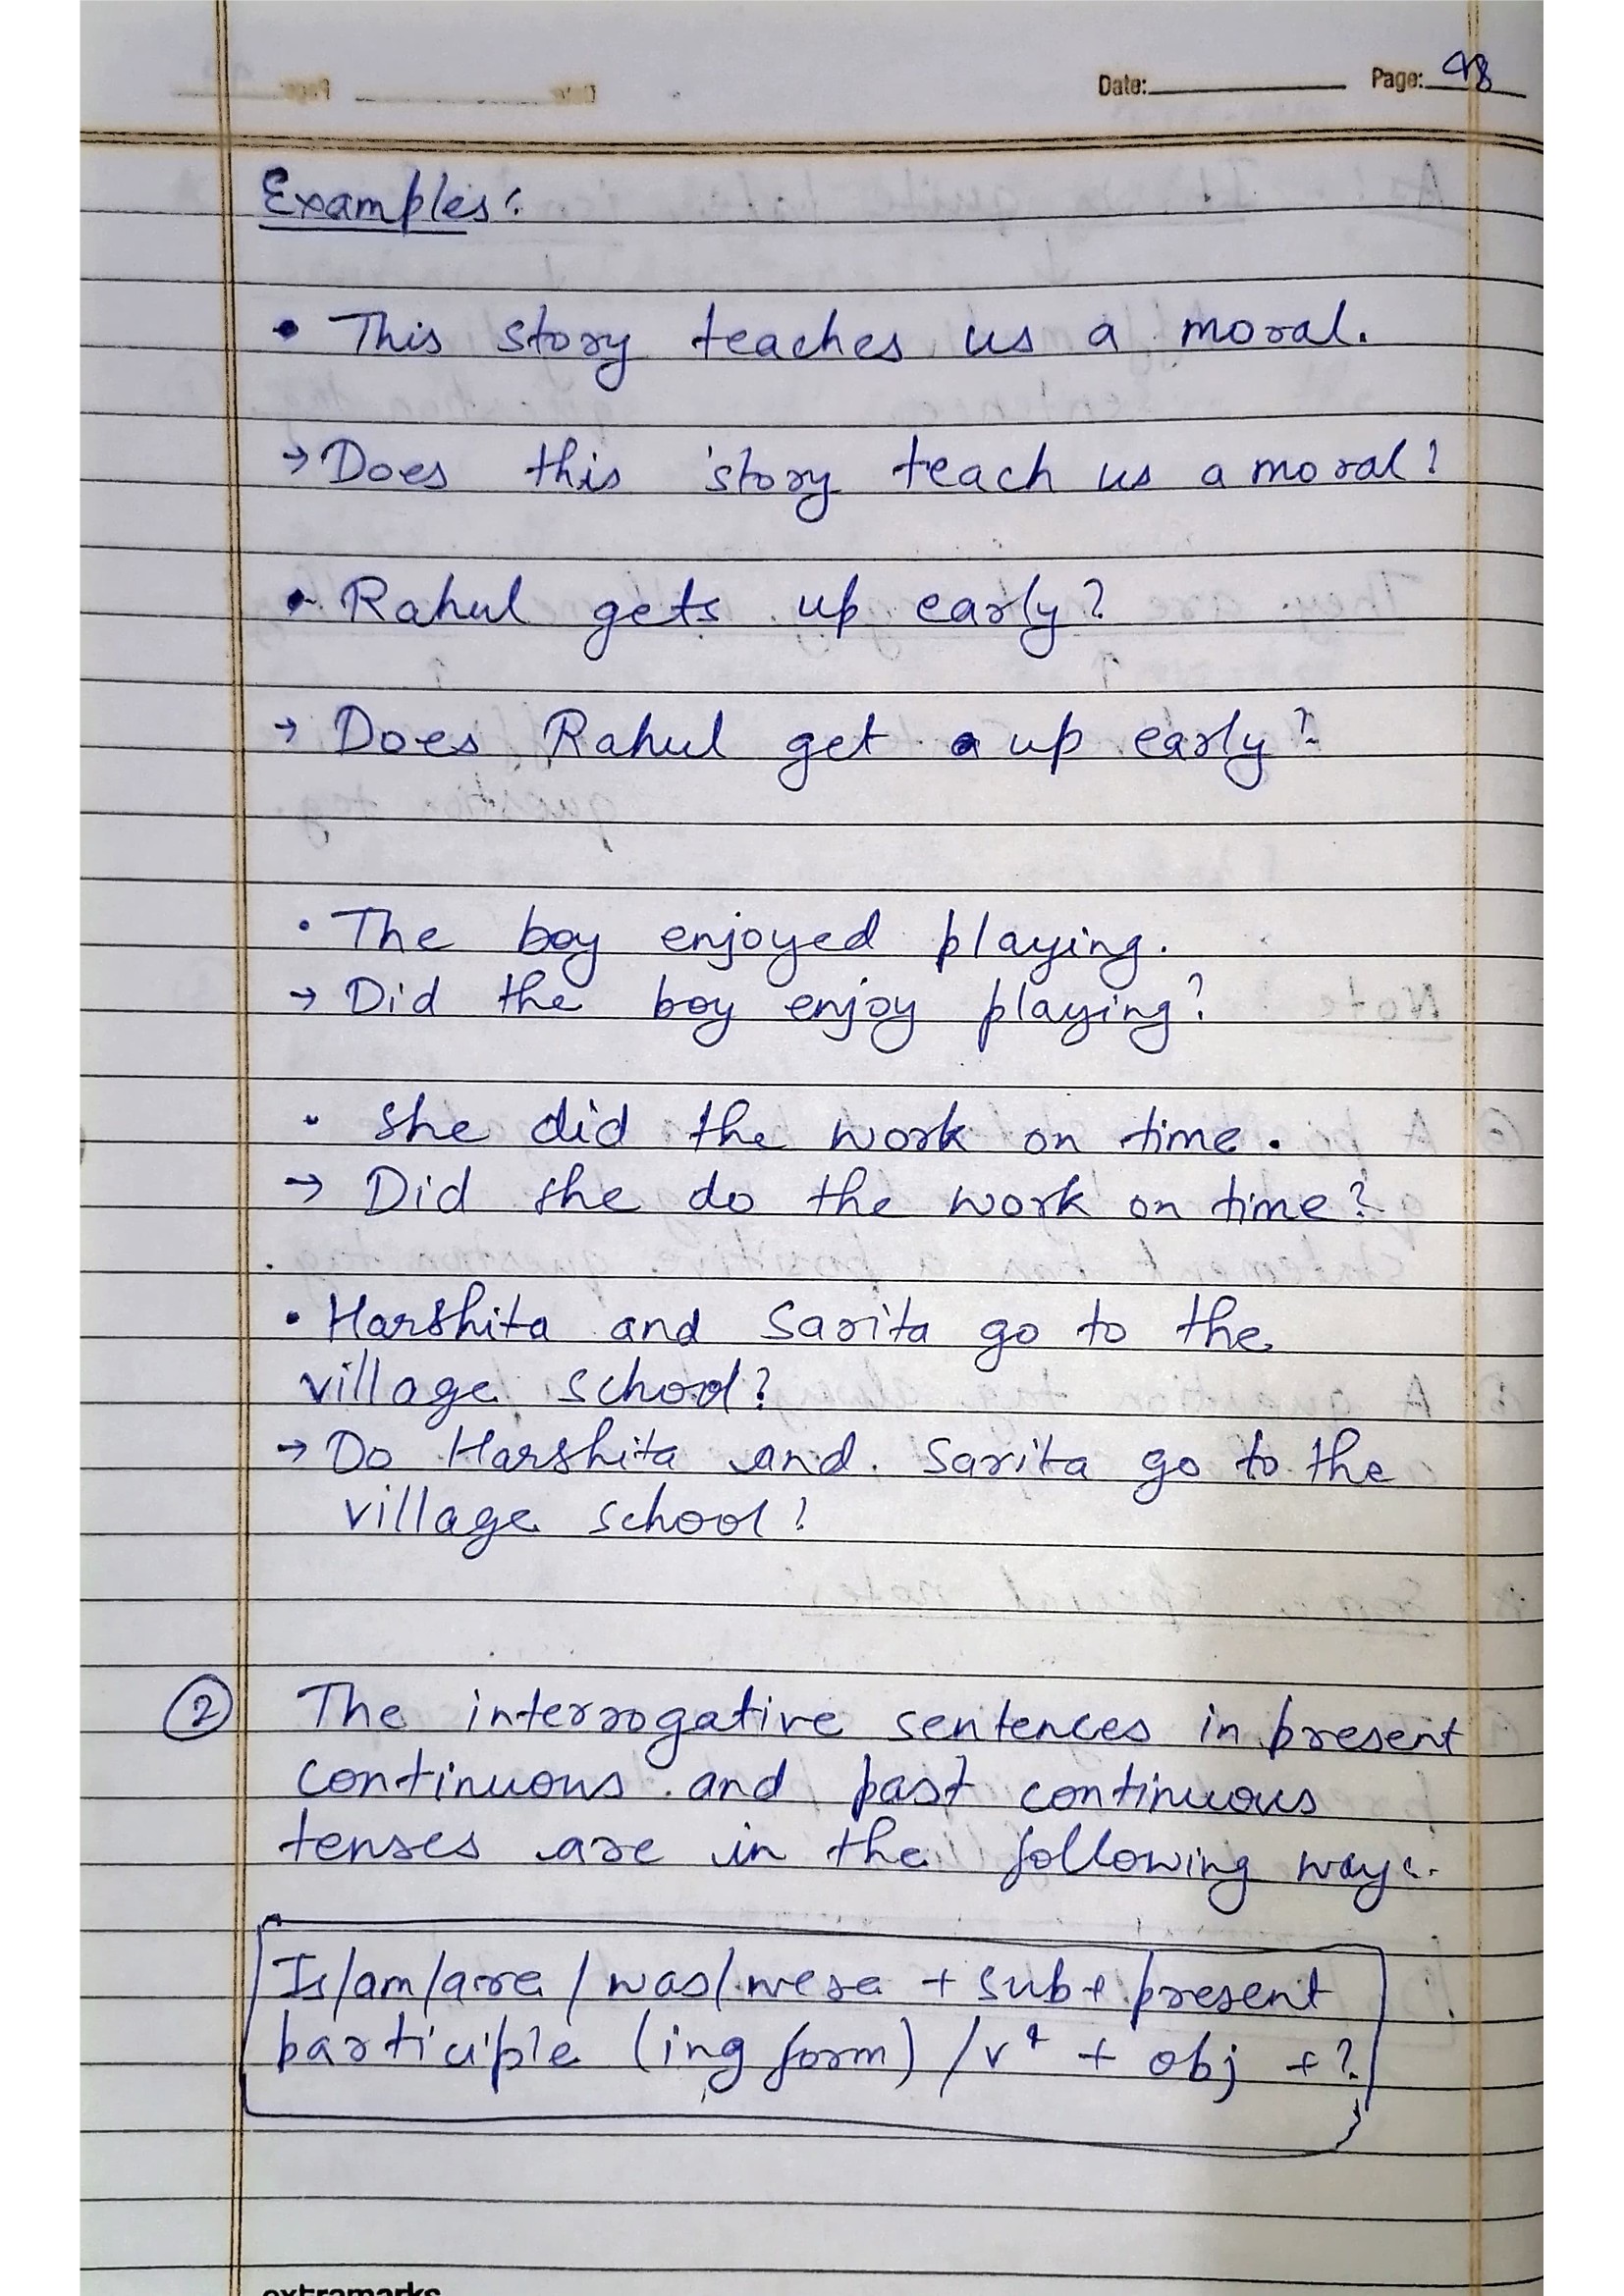 Date: Page: 98
Examples:
• This story teaches us a moral.
→ Does this story teach us a moral?
• Rahul gets up early?
→ Does Rahul get up early?
• The boy enjoyed playing.
→ Did the boy enjoy playing?
• She did the work on time.
→ Did she do the work on time?
• Harshita and Sarita go to the
village school?
→ Do Harshita and Sarita go to the
village school?
② The interrogative sentences in present
continuous and past continuous
tenses are in the following ways.
Is/am/are/was/were + sub + present
participle (ing form) / v⁴ + obj + ?
extramarks